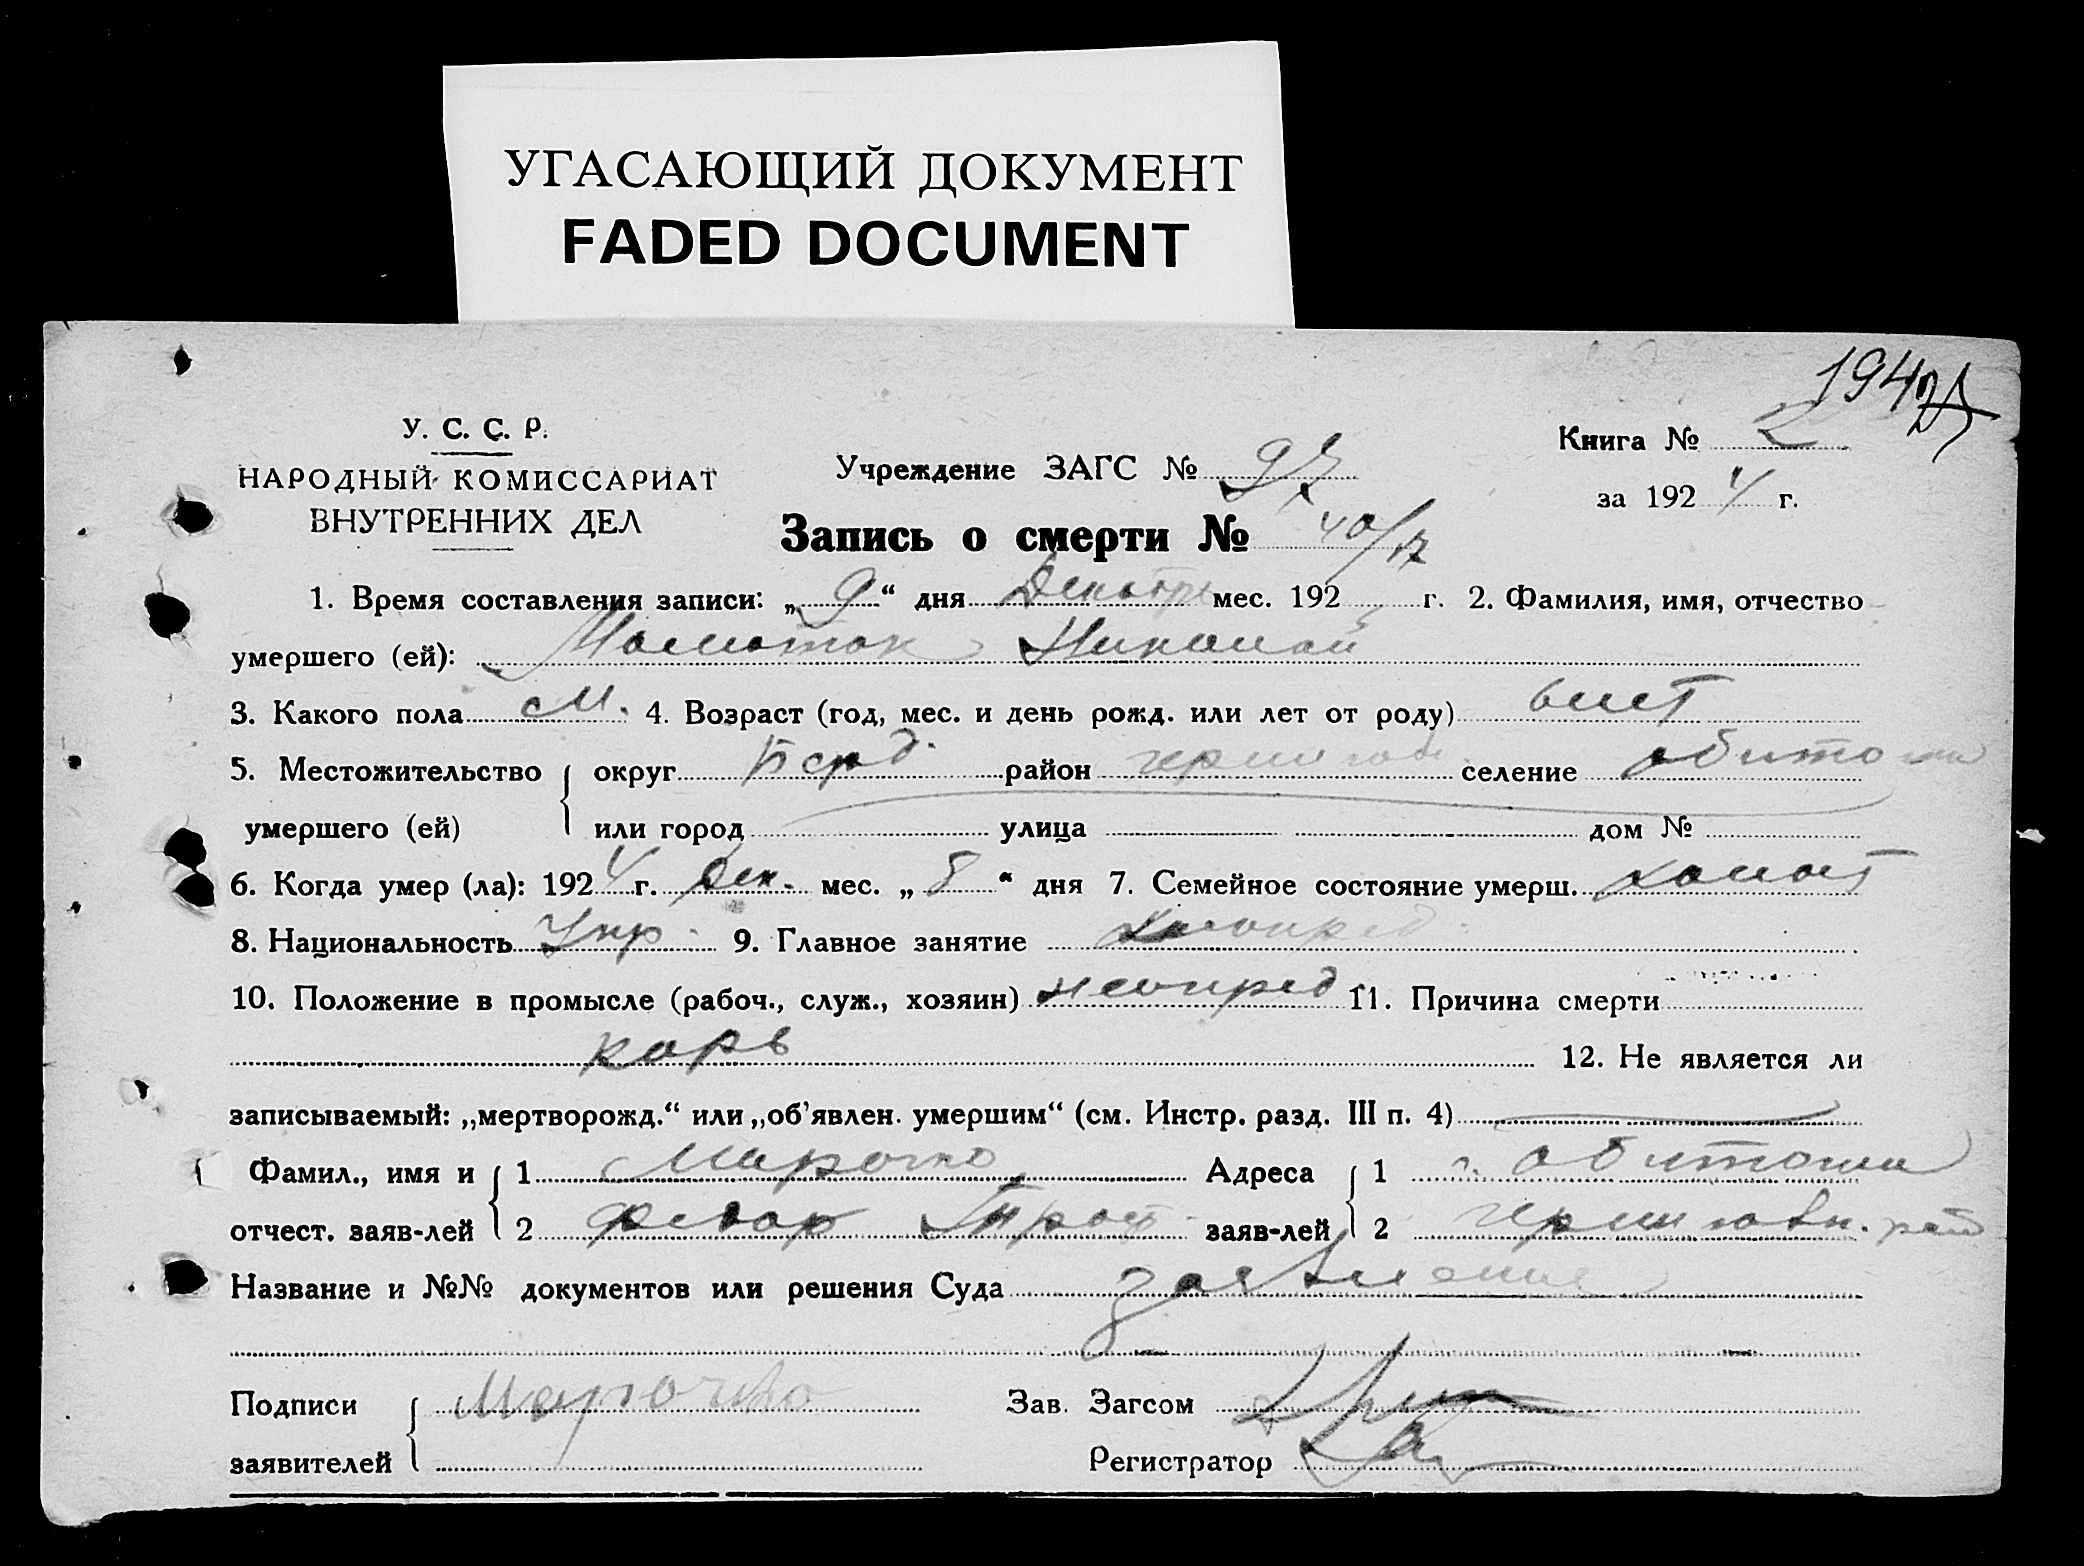 УГАСАЮЩИЙ ДОКУМЕНТ
FADED DOCUMENT
194
У. С. С. Р.
НАРОДНЫЙ КОМИССАРИАТ
ВНУТРЕННИХ ДЕЛ
Учреждение ЗАГС №
Книга № 2
за 192 4 г.
Запись о смерти № 40/
1. Время составления записи: „ 9 “ дня Декабря мес. 192 г. 2. Фамилия, имя, отчество
умершего (ей): Николай
3. Какого пола М. 4. Возраст (год, мес. и день рожд. или лет от роду) 6 лет
5. Местожительство округ Берд. район черниговс. селение обиточн
умершего (ей) или город улица дом №
6. Когда умер (ла): 192 4 г. Дек. мес. „ 8 “ дня 7. Семейное состояние умерш. холост
8. Национальность Укр. 9. Главное занятие неопред.
10. Положение в промысле (рабоч., служ., хозяин) неопред 11. Причина смерти
корь 12. Не является ли
записываемый: „мертворожд.“ или „об’явлен. умершим“ (см. Инстр. разд. III п. 4)
Фамил., имя и 1 Марочко Адреса 1 с. обиточни
отчест. заяв-лей 2 Федор Троф. заяв-лей 2 черниговск. рай
Название и №№ документов или решения Суда заявление
Подписи Марочко Зав. Загсом
заявителей Регистратор